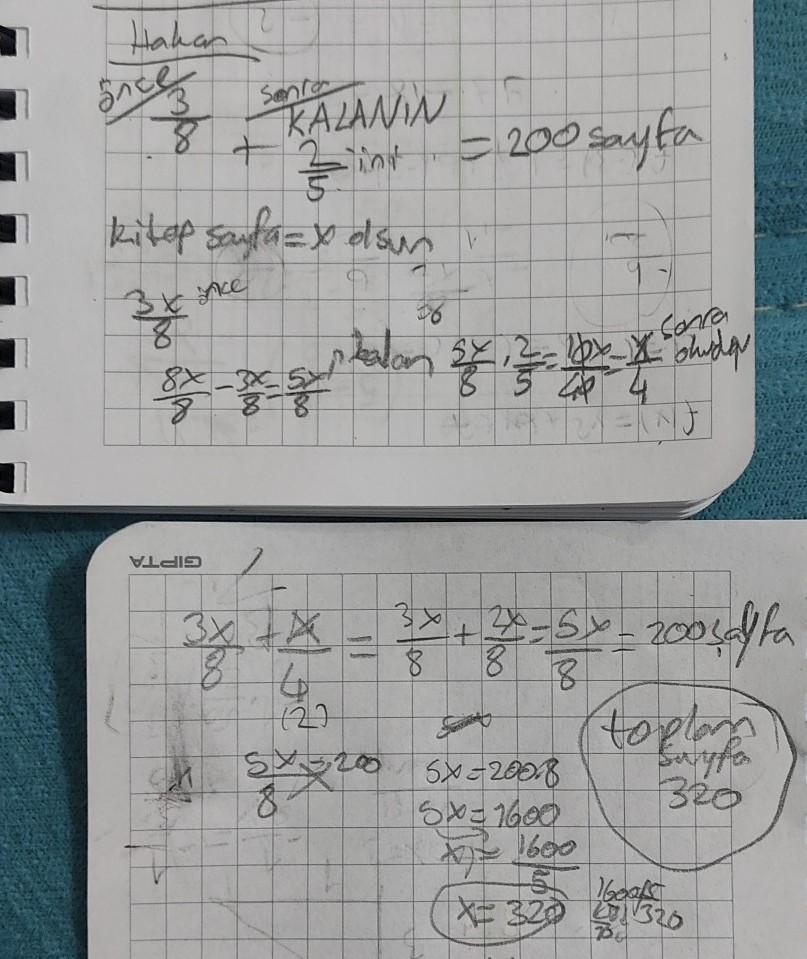 Hakan
önce sonra
3/8 + KALANIN 2/5 ini = 200 sayfa
kitap sayfa = x olsun
3x/8 önce
8x/8 - 3x/8 = 5x/8 kalan 5x/8 . 2/5 = 10x/40 = x/4 sonra okuduğu
GIPTA
3x/8 + x/4 = 3x/8 + 2x/8 = 5x/8 = 200 sayfa
(2)
5x/8 = 200
5x = 200.8
5x = 1600
x = 1600/5
x = 320
1600 5
320
toplam
sayfa
320